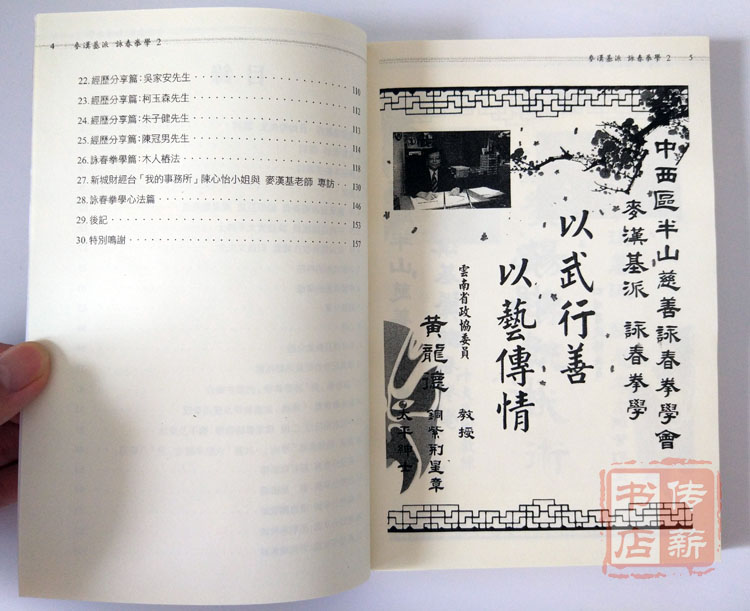 4 ‧ 麥漢基派 詠春拳學 2
22. 經歷分享篇：吳家安先生 110
23. 經歷分享篇：柯玉森先生 112
24. 經歷分享篇：朱子健先生 113
25. 經歷分享篇：陳冠男先生 114
26. 詠春拳學篇：木人樁法 118
27. 新城財經台「我的事務所」陳心怡小姐與 麥漢基老師 專訪 130
28. 詠春拳學心法篇 146
29. 後記 153
30. 特別鳴謝 157
麥漢基派 詠春拳學 2 ‧ 5
中西區半山慈善詠春拳學會
麥漢基派 詠春拳學
以武行善
以藝傳情
雲南省政協委員
黃龍德 教授
銅紫荊星章
太平紳士
传新
书店